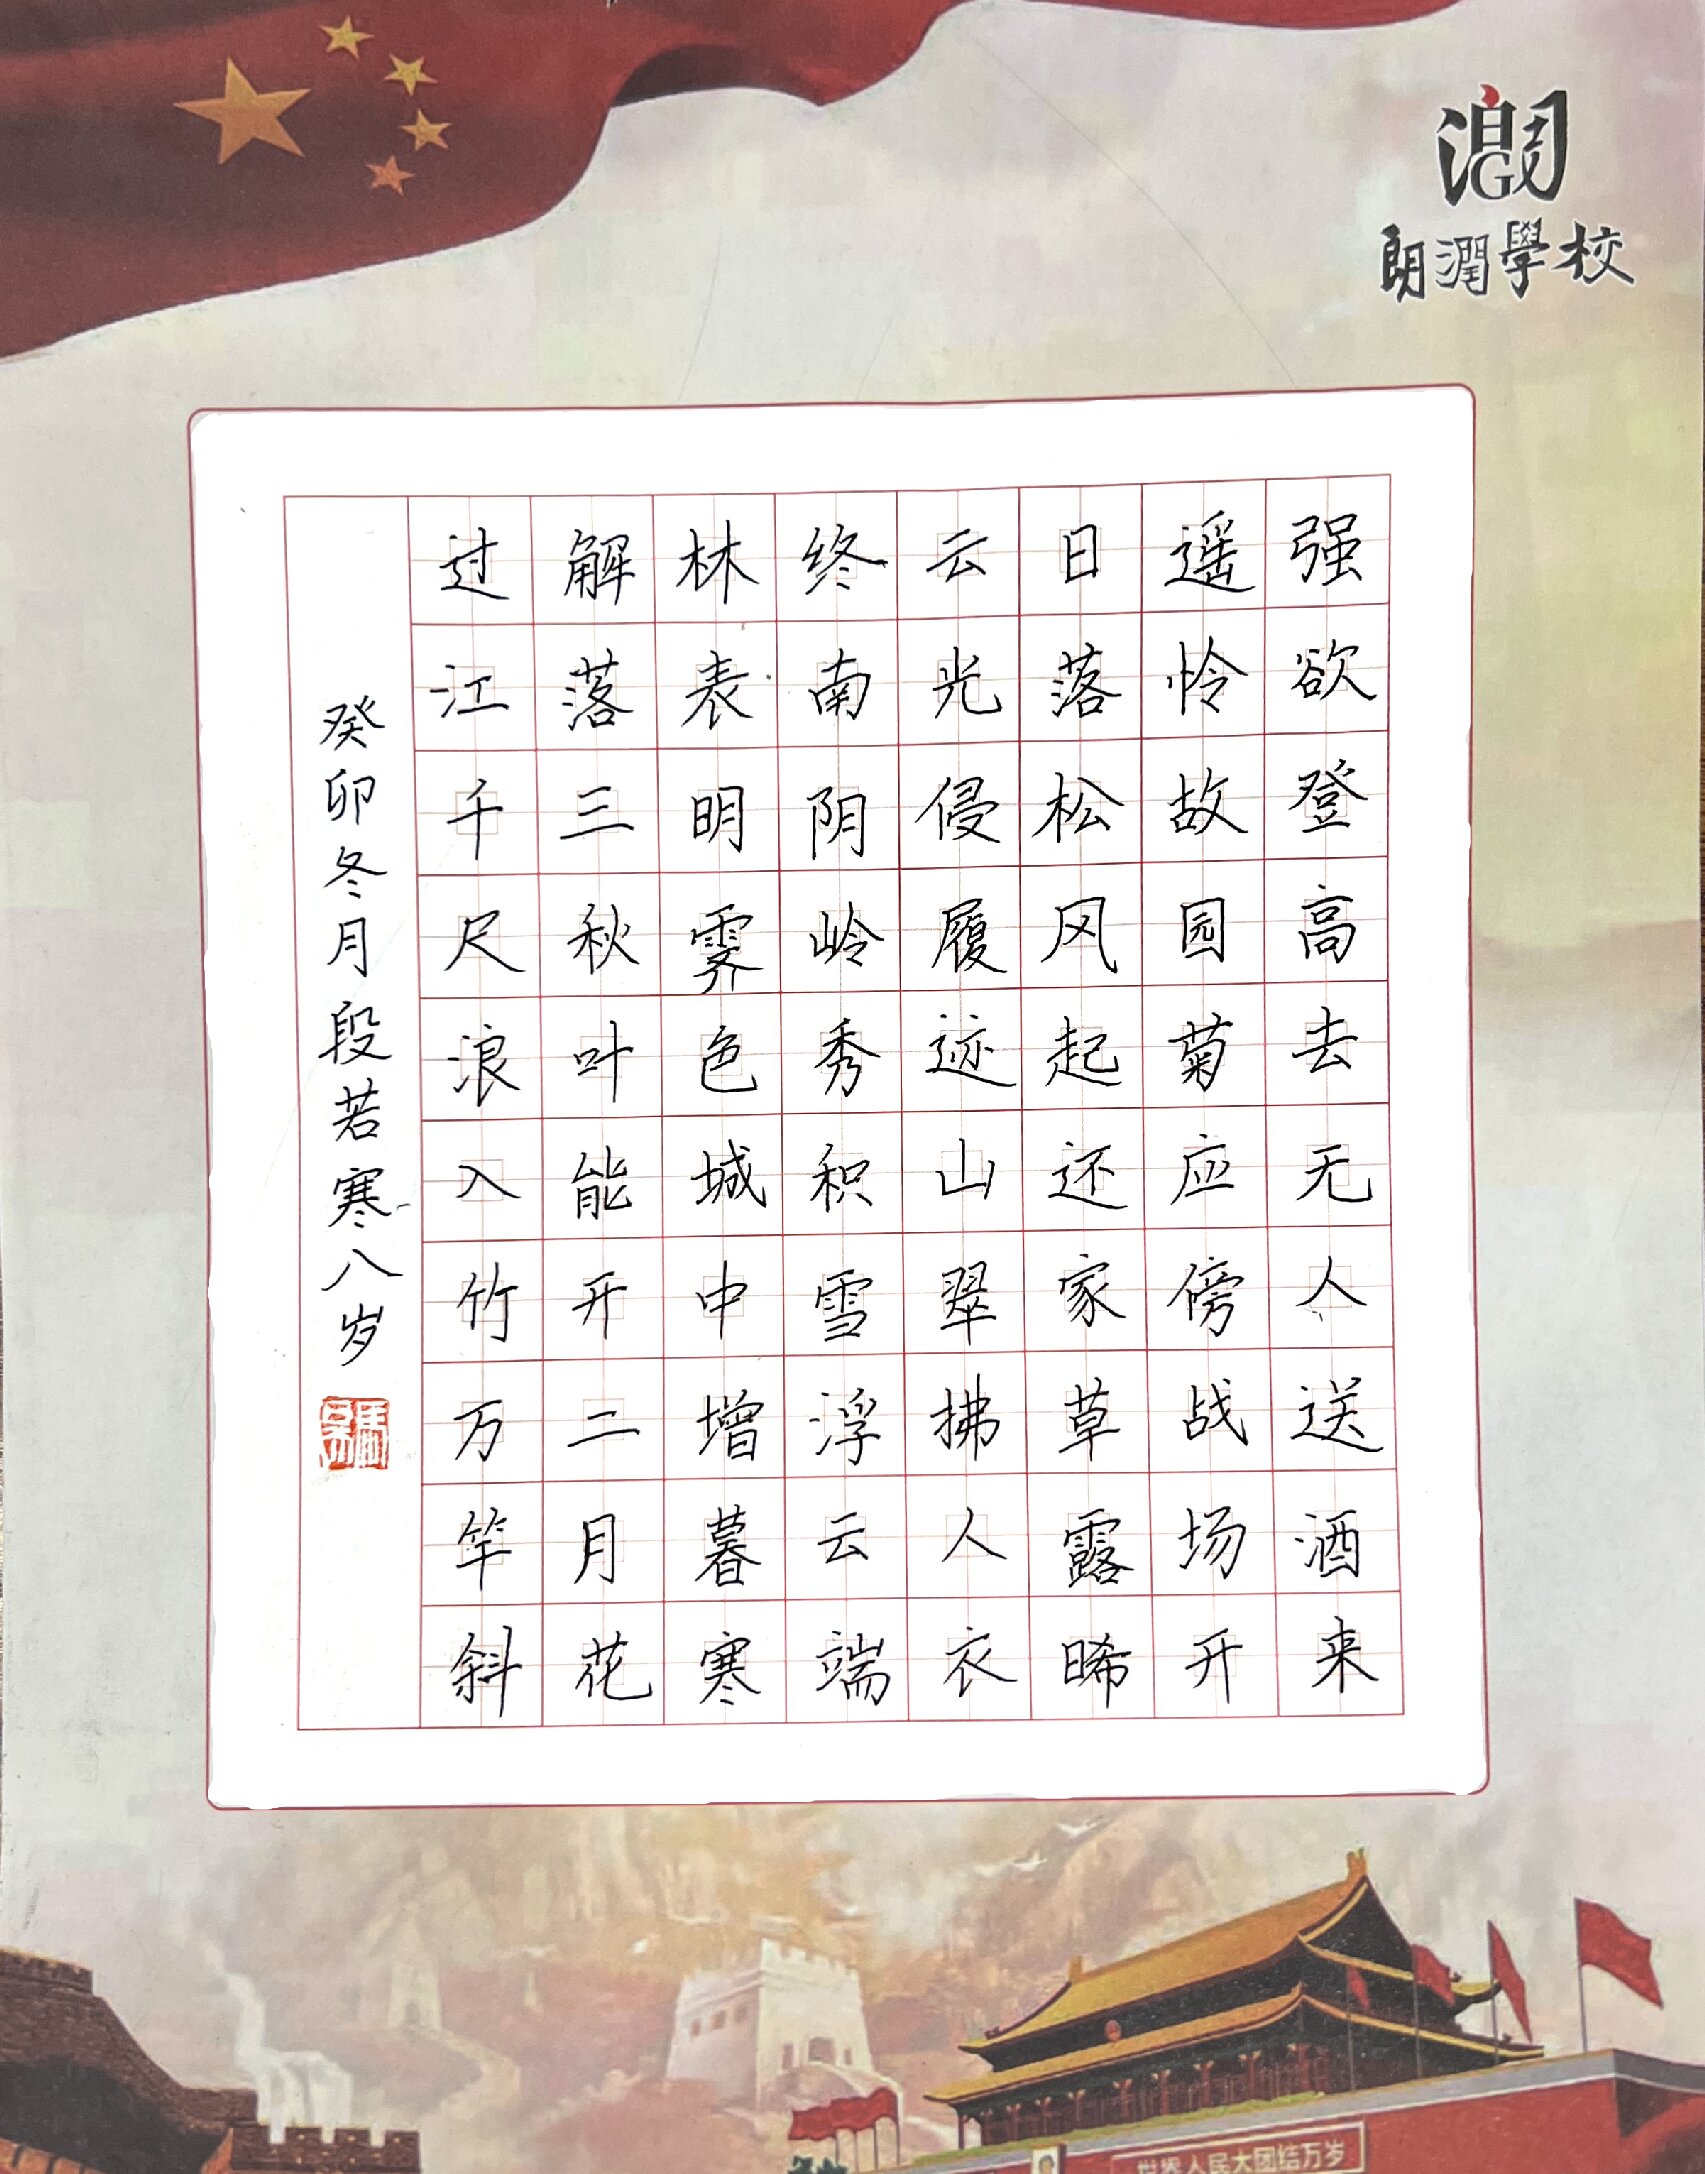 朗潤學校
强欲登高去无人送酒来
遥怜故园菊应傍战场开
日落松风起还家草露晞
云光侵履迹山翠拂人衣
终南阴岭秀积雪浮云端
林表明霁色城中增暮寒
解落三秋叶能开二月花
过江千尺浪入竹万竿斜
癸卯冬月段若寒八岁
世界人民大团结万岁